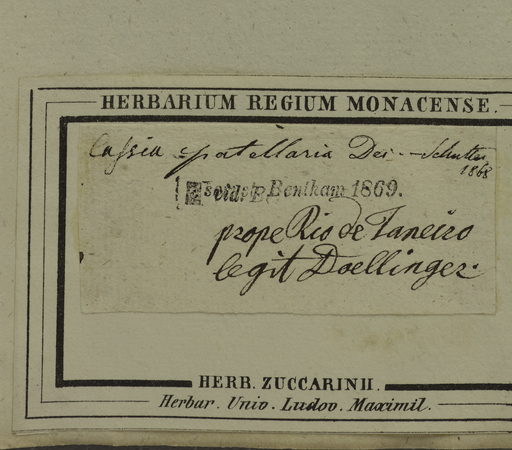 HERBARIUM REGIUM MONACENSE.
Cassia patellaria Dec.
1868
Bentham 1869.
prope Rio de Janeiro
legit Doellinger.
HERB. ZUCCARINII.
Herbar. Univ. Ludov. Maximil.